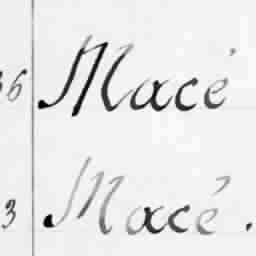 36 Macé
3 Macé.